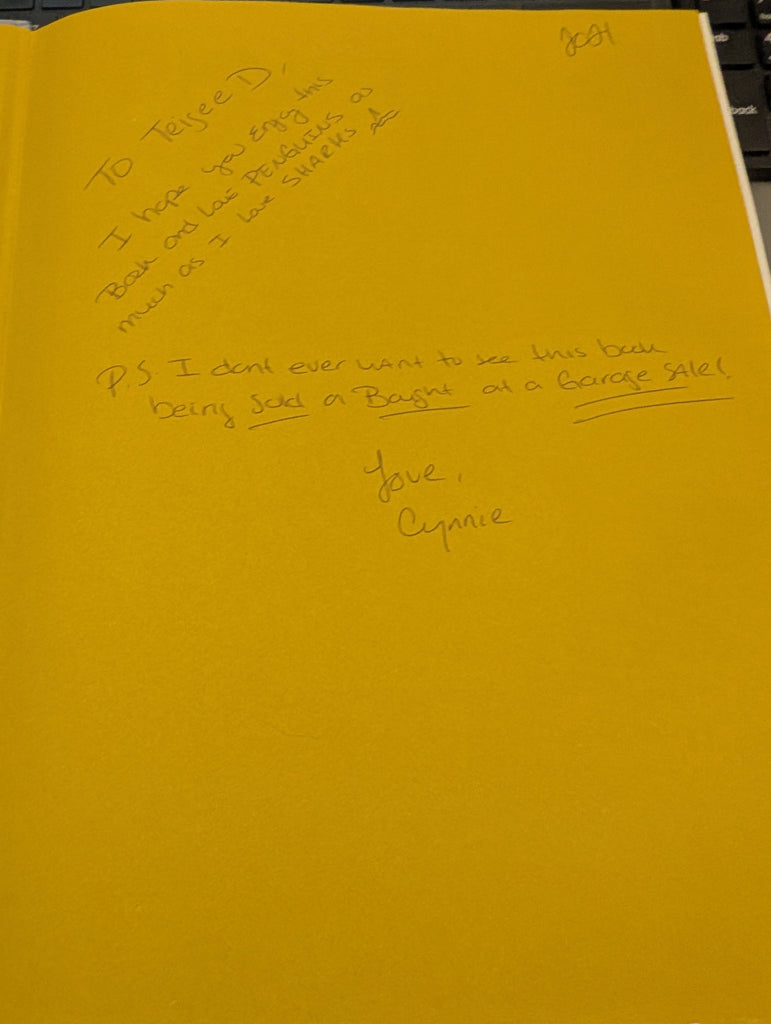 2021
To Teisee D,
I hope you Enjoy this
Book and Love PENGUINS as
much as I love SHARKS
P.S. I dont ever want to see this book
being Sold or Bought at a Garage SALE!
Love,
Cynnie